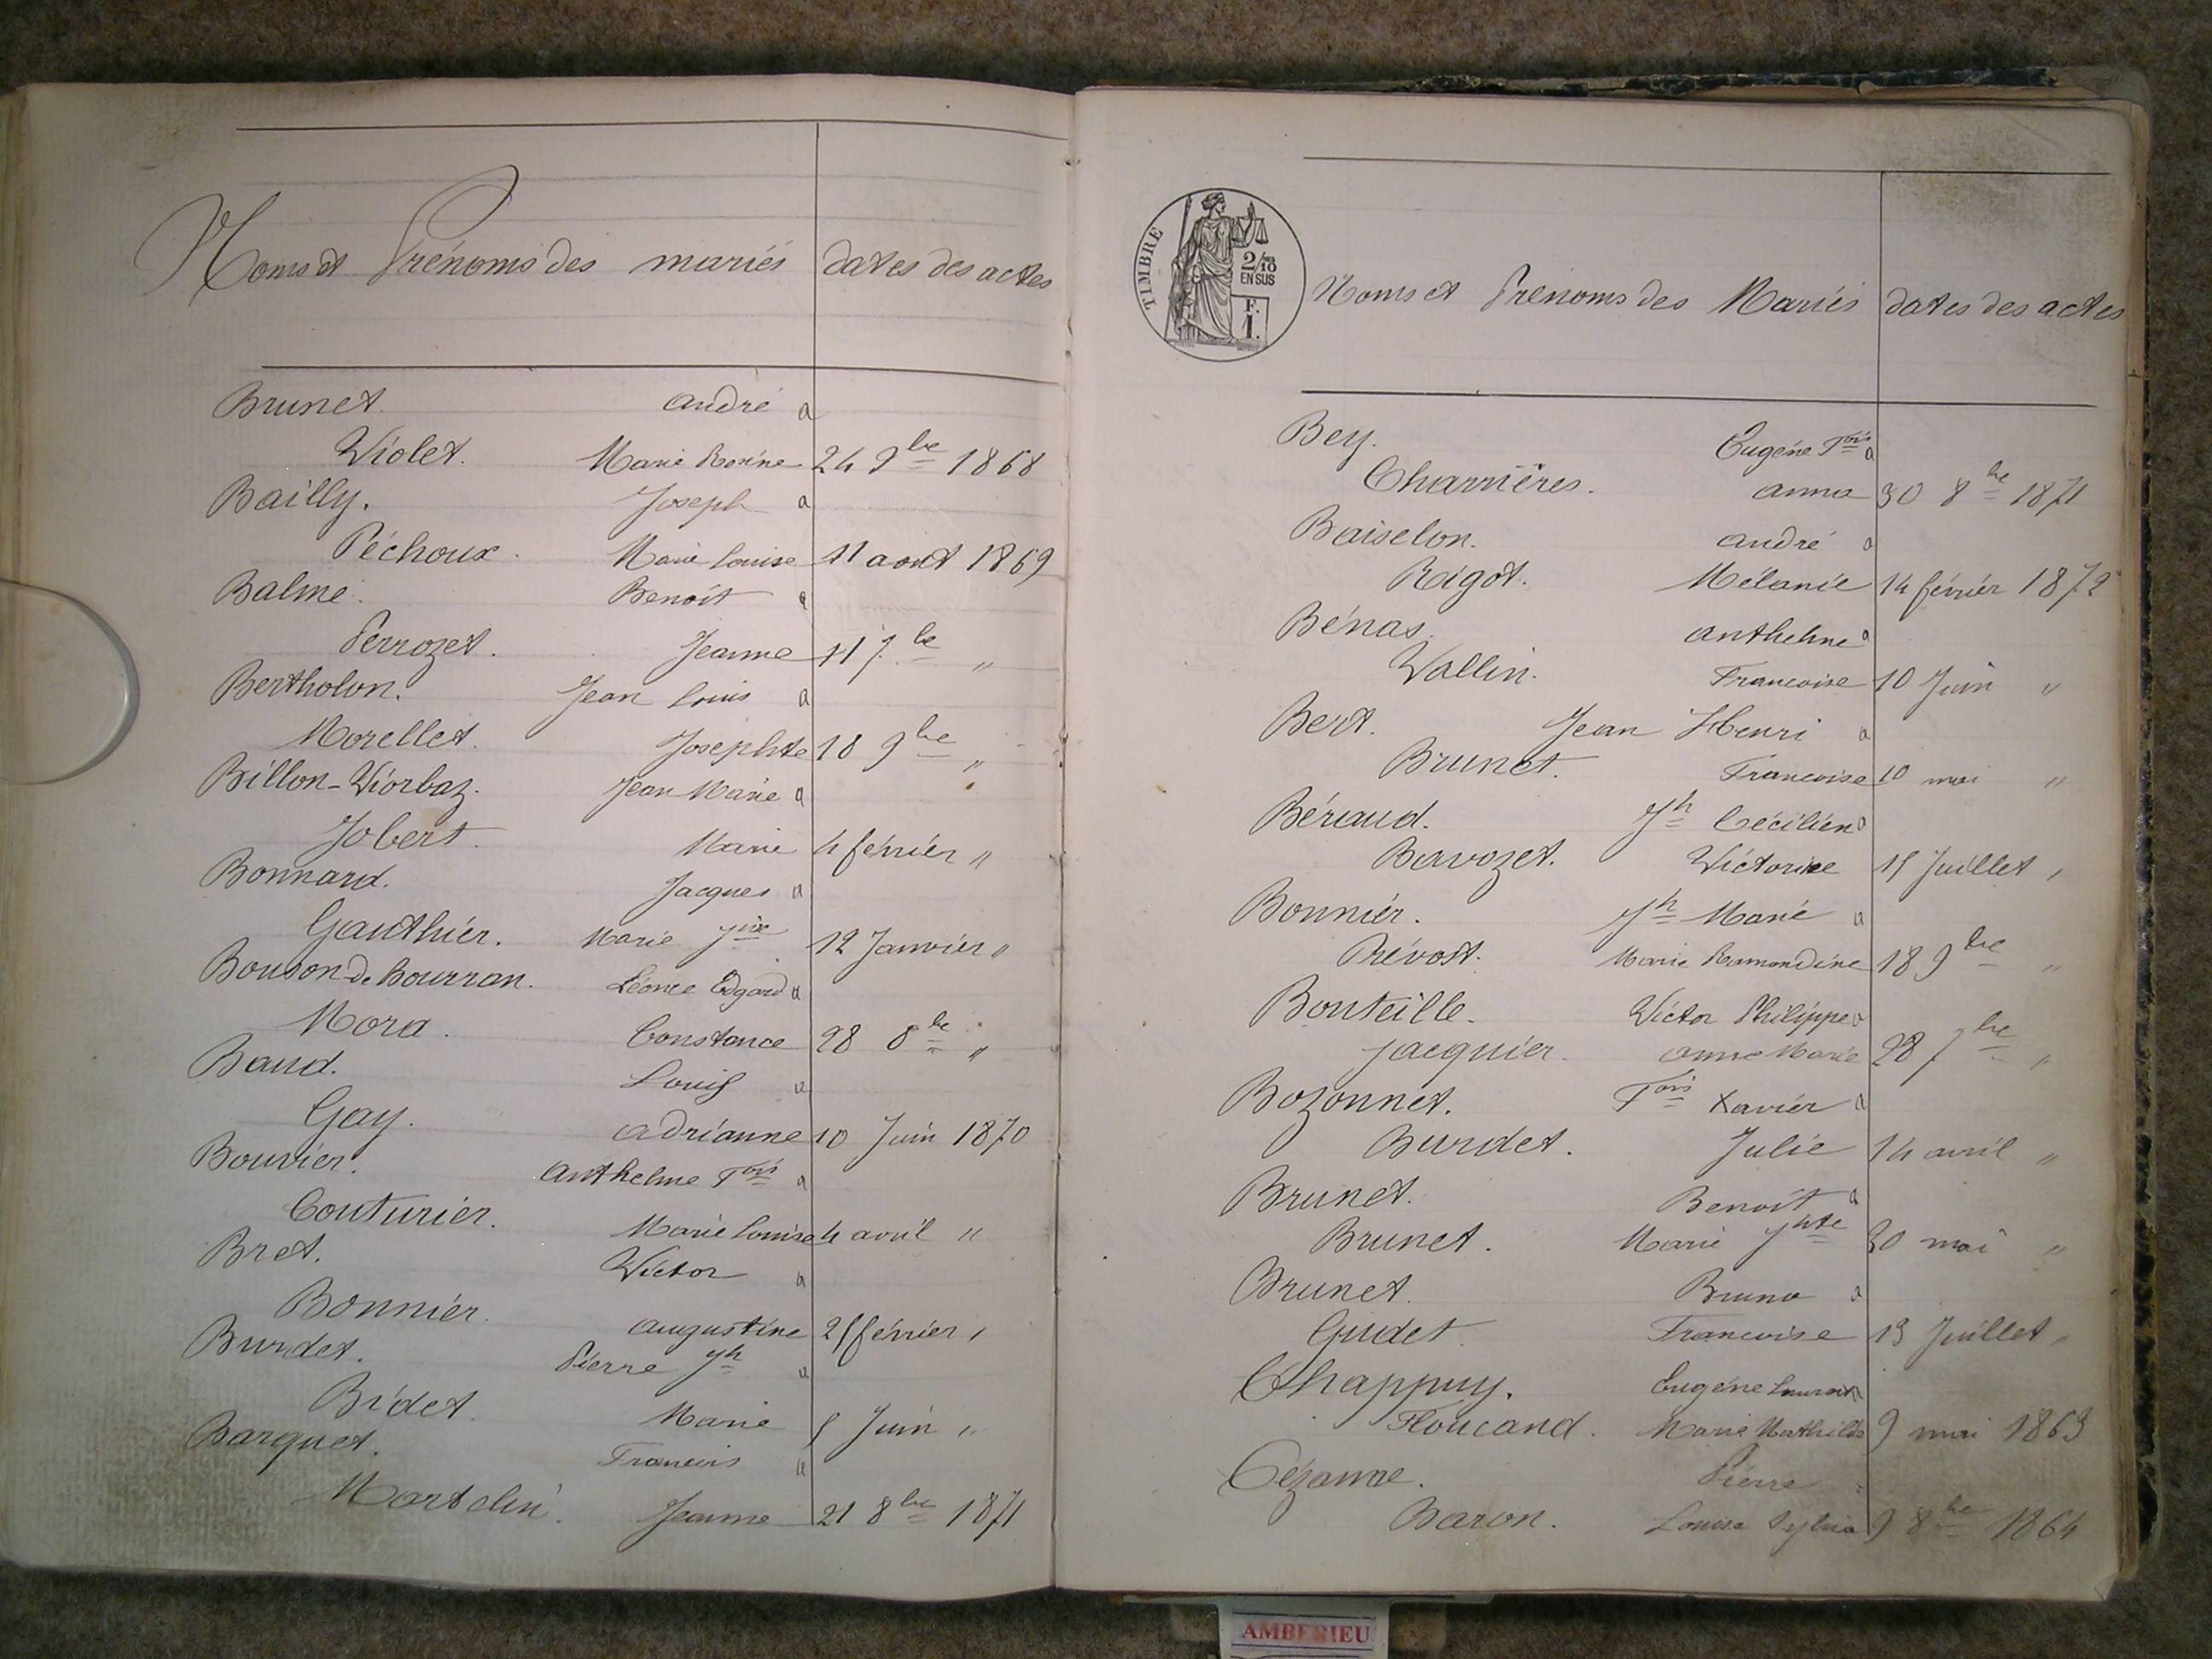 Noms et Prénoms des mariés dates des actes
Brunet. André a
Violet. Marie Rosine 24 9bre 1868
Bailly. Joseph a
Péchoux. Marie Louise 11 aout 1869
Balme. Benoit a
Perrozet. Jeanne 11 7bre "
Bertholon. Jean Louis a
Morellet. Josephte 18 9bre "
Billon-Viorbaz. Jean Marie a
Jobert. Marie 4 février "
Bonnard. Jacques a
Gauthier. Marie 12 Janvier "
Léonce Edgard a
Mora. Constance 28 8bre "
Baud. Louis a
Gay. Adrianne 10 Juin 1870
Bouvier. Anthelme Fois a
Couturier. Marie Louise 4 avril "
Bret. Victor a
Bonnier. Augustine 25 février "
Burdet. Pierre Jh a
Bidet. Marie 5 Juin "
Barquet. Francois a
Martelin. Jeanne 21 8bre 1871
TIMBRE
2/10
EN SUS
F.
1.
Noms et Prénoms des Mariés dates des actes
Bey. Eugéne Fois a
Charrières. Anna 30 8bre 1871
Baiselon. André a
Rigot. Mélanie 14 février 1872
Bénas. Anthelme a
Vallin. Francoise 10 Juin "
Bert. Jean Henri a
Brunet. Francoise 10 mai "
Béraud. Jh Cécilien a
Bavozet. Victorine 15 Juillet "
Bonnier. Jh Marie a
Prévost. Marie Ramondine 18 9bre "
Bouteille. Victor Philippe a
Jacquier. Anne Marie 28 7bre "
Bozonnet. Fois Xavier a
Burdet. Julie 14 avril "
Brunet. Benoit a
Brunet. Marie Jhte 30 mai "
Brunet. Bruno a
Gudet. Francoise 13 Juillet "
Chappuy. Eugéne Laurent a
Floucand. Marie Mathilde 9 mai 1863
Cézanne. Pierre
Baron. Louise Sylvia 9 8bre 1864
AMBERIEU